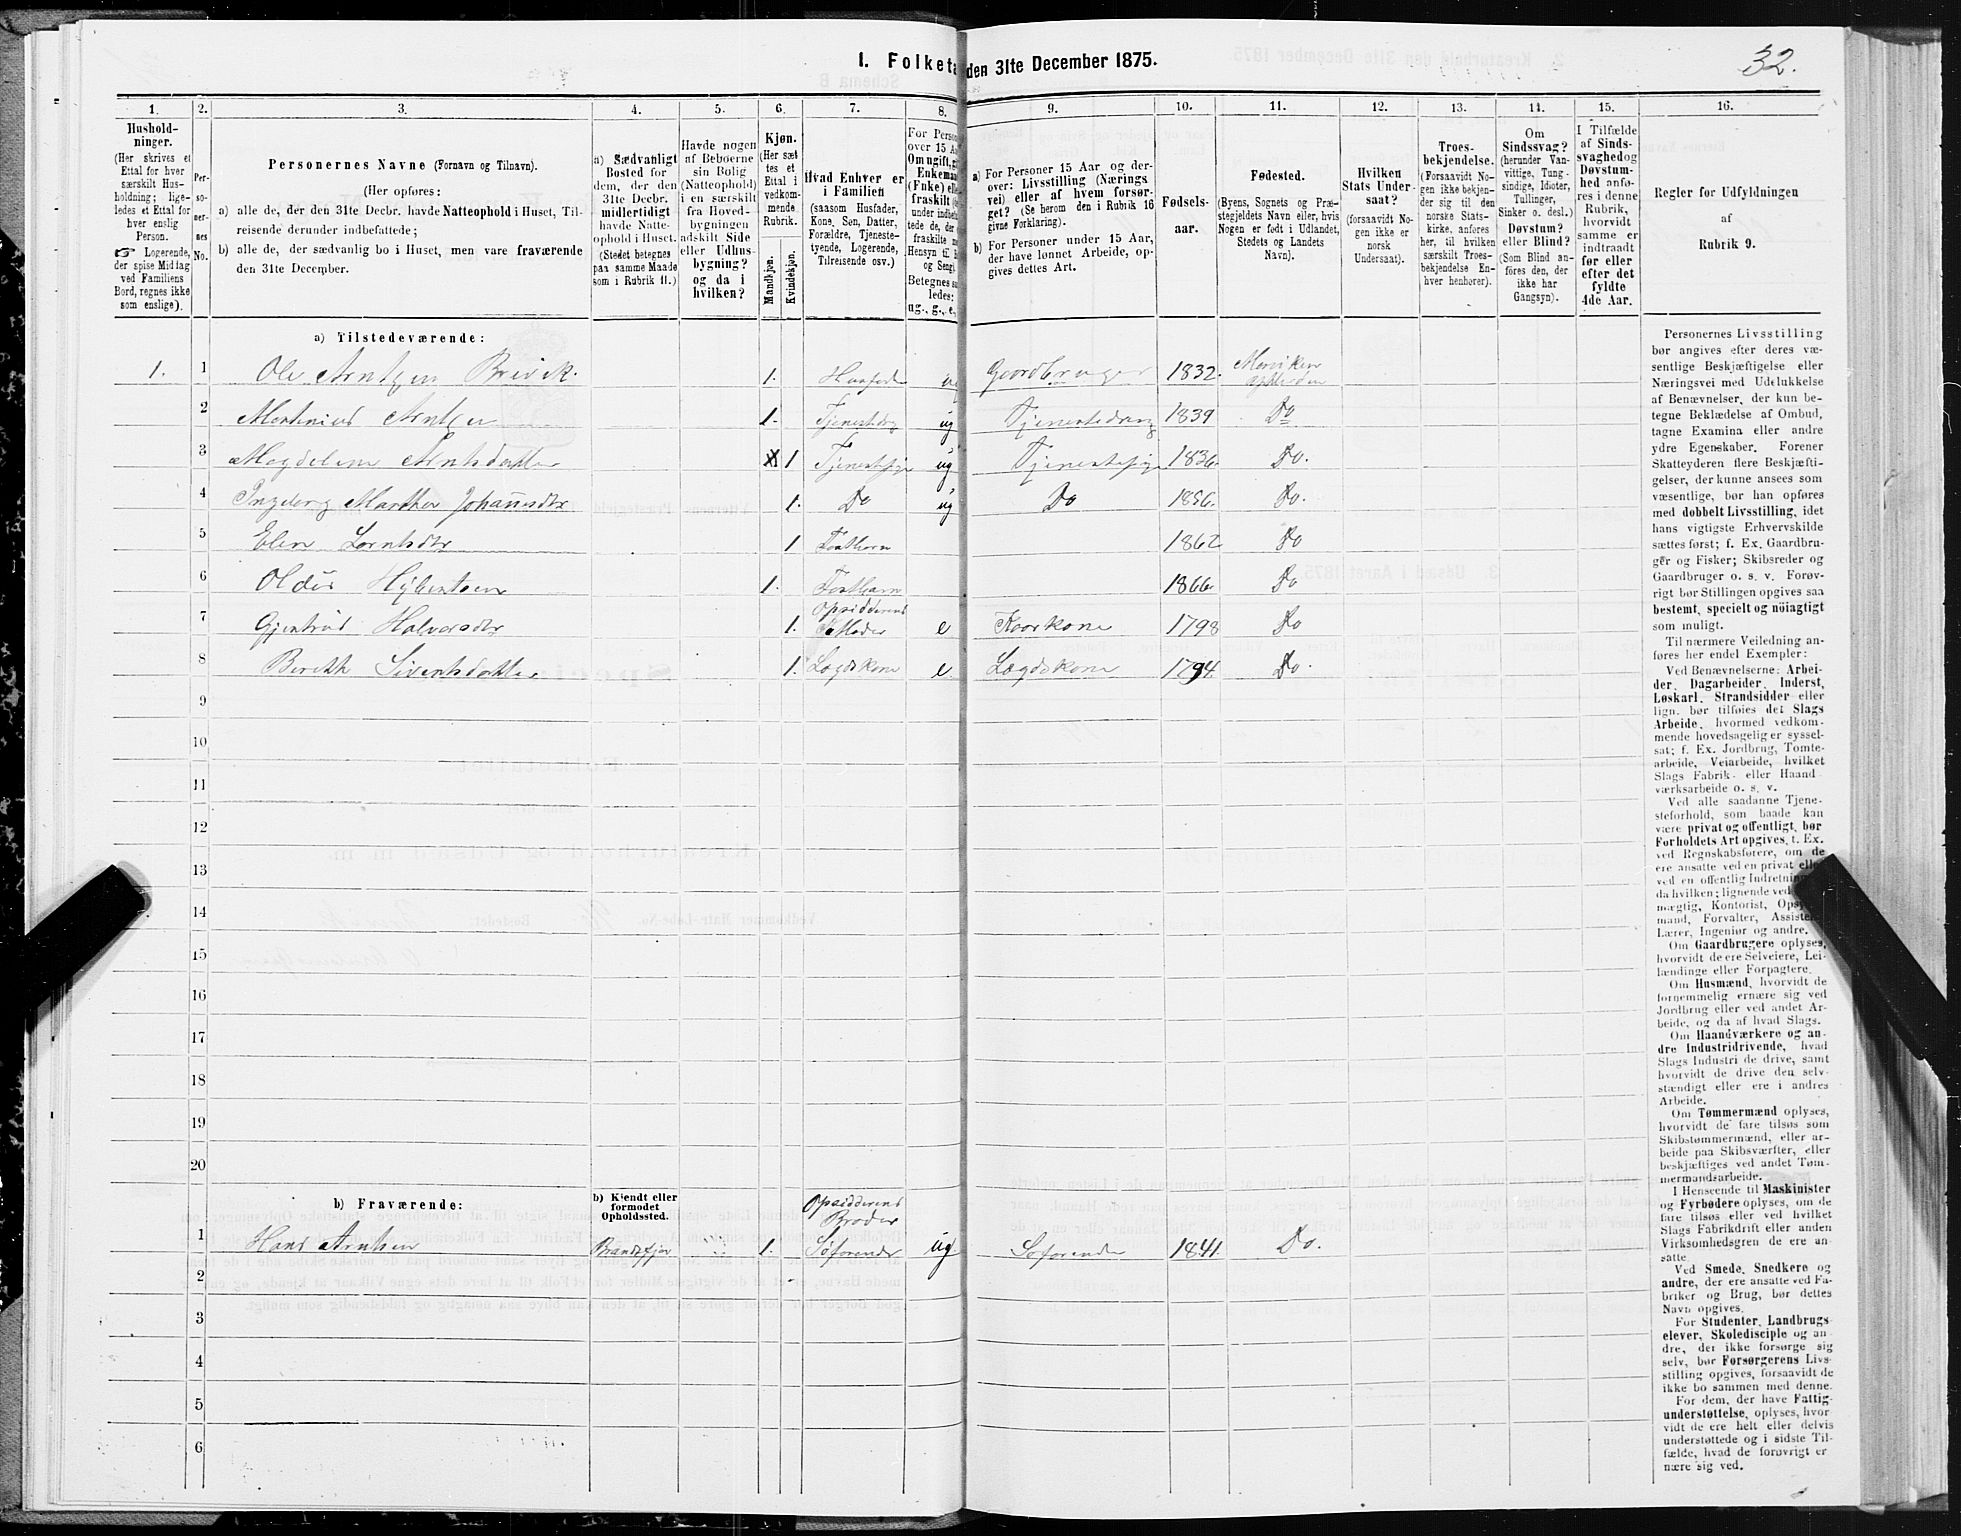 32.
I. Folketa den 31te December 1875.
1. 2. 3. 4. 5. 6. 7. 8. 9. 10. 11. 12. 13. 14. 15. 16.
Hushold-
ninger.
(Her skrives et
Ettal for hver
særskilt Hus-
holdning; lige-
ledes et Ettal for
hver enslig
Person.
☞ Logerende,
der spise Middag
ved Familiens
Bord, regnes ikke
som enslige).
Per-
so-
ner-
nes
No.
Personernes Navne (Fornavn og Tilnavn).
(Her opføres:
a) alle de, der den 31te Decbr. havde Natteophold i Huset, Til-
reisende derunder indbefattede;
b) alle de, der sædvanlig bo i Huset, men vare fraværende
den 31te December.
a) Sædvanligt
Bosted for
dem, der den
31te Decbr.
midlertidigt
havde Natte-
ophold i Huset.
(Stedet betegnes
paa samme Maade
som i Rubrik 11.)
Havde nogen
af Beboerne
sin Bolig
(Natteophold)
i en særskilt
fra Hoved-
bygningen
adskilt Side
eller Udhus-
bygning?
og da i
hvilken?
Kjøn.
(Her sæt-
tes et
Ettal i
vedkom-
mende
Rubrik.
Mandkjøn.
Kvindekjøn.
Hvad Enhver er
i Familien
(saasom Husfader,
Kone, Søn, Datter,
Forældre, Tjeneste-
tyende, Logerende,
Tilreisende osv.)
For Person
over 15 Aa
Om ugift, g
Enkeman
(Enke) elle
fraskilt
under indbe
tede de, der
fraskilte
Hensyn til
og Seng)
Betegnes s
ledes:
ug., g., e.,
a) For Personer 15 Aar og der-
over: Livsstilling (Nærings-
vei) eller af hvem forsør-
get? (Se herom den i Rubrik 16
givne Forklaring).
b) For Personer under 15 Aar,
der have lønnet Arbeide, op-
gives dettes Art.
Fødsels-
aar.
Fødested.
(Byens, Sognets og Præ-
stegjeldets Navn eller, hvis
Nogen er født i Udlandet,
Stedets og Landets
Navn).
Hvilken
Stats Under-
saat?
(forsaavidt No-
gen ikke er
norsk
Undersaat).
Troes-
bekjendelse.
(Forsaavidt No-
gen ikke bekjen-
der sig til den
norske Stats-
kirke, anføres
her, til hvilken
særskilt Troes-
bekjendelse En-
hver henhører).
Om
Sindssvag?
(herunder Van-
vittige, Tung-
sindige, Idioter,
Tullinger,
Sinker o. desl.)
Døvstum?
eller Blind?
(Som Blind an-
føres den, der
ikke har
Gangsyn).
I Tilfælde
af Sinds-
svaghed og
Døvstum-
hed anfø-
res i denne
Rubrik,
hvorvidt
samme er
indtraadt
før eller
efter det
fyldte
4de Aar.
Regler for Udfyldningen
af
Rubrik 9.
a) Tilstedeværende:
1. 1 Ole Arntzen Brevik. 1. Gaardbruger 1832.
2 1. ug Tjenestedreng 1839 Do
3 Magdelena Arntsdatter 1 ug 1836. Do.
4 Ingeborg Marthea Johansdtr 1. Do ug Do 1856. Do.
5 Elen Lorntsdtr 1 Fostbarn 1862 Do
6 1. Fostbarn 1866. Do
Opsidderens
7 Halvorsdtr 1. Moder e Kaarkone 1798 Do
8 Sivertsdatter 1. Lægdskone e Lægdskone 1794. Do.
9
10
11
12
13
14
15
16
17
18
19
20
b) Fraværende:
b) Kjendt eller
formodet
Opholdssted.
Opsidderens
Broder
1 Hans Arntsen 1. Søfarende ug Søfarende 1841. Do.
2
3
4
5
6
Personernes Livsstilling
bør angives efter deres væ-
sentlige Beskjæftigelse eller
Næringsvei med Udelukkelse
af Benævnelser, der kun be-
tegne Beklædelse af Ombud,
tagne Examina eller andre
ydre Egenskaber. Forener
Skatteyderen flere Beskjæfti-
gelser, der kunne ansees som
væsentlige, bør han opføres
med dobbelt Livsstilling, idet
hans vigtigste Erhvervskilde
sættes først; f. Ex. Gaardbru-
ger og Fisker; Skibsreder og
Gaardbruger o. s. v. Forøv-
rigt bør Stillingen opgives saa
bestemt, specielt og nöiagtigt
som muligt.
Til nærmere Veiledning an-
føres her endel Exempler:
Ved Benævnelserne: Arbei-
der, Dagarbeider, Inderst,
Løskarl, Strandsidder eller
lign. bør tilføies det Slags
Arbeide, hvormed vedkom-
mende hovedsagelig er syssel-
sat; f. Ex. Jordbrug, Tomte-
arbeide, Veiarbeide, hvilket
Slags Fabrik- eller Haand-
værksarbeide o. s. v.
Ved alle saadanne Tjene-
steforhold, som baade kan
være privat og offentligt, bør
Forholdets Art opgives, t. Ex.
ved Regnskabsførere, om de
ere ansatte ved en privat elle
ved en offentlig Indretnin
da hvilken; lignende ved
mægtig, Kontorist, Ops
mand, Forvalter, Assiste
Lærer, Ingeniør og andre.
Om Gaardbrugere oplyses,
hvorvidt de ere Selveiere, Lei-
lændinge eller Forpagtere.
Om Husmænd, hvorvidt de
fornemmelig ernære sig ved
Jordbrug eller ved andet Ar-
beide, og da af hvad Slags.
Om Haandværkere og an-
dre Industridrivende, hvad
Slags Industri de drive, samt
hvorvidt de drive den selv-
stændigt eller ere i andres
Arbeide.
Om Tømmermænd oplyses,
hvorvidt de fare tilsøs som
Skibstømmermænd, eller ar-
beide paa Skibsværfter, eller
beskjæftiges ved andet Tøm-
mermandsarbeide.
I Henseende til Maskinister
og Fyrbødere oplyses, om de
fare tilsøs eller ved hvilket
Slags Fabrikdrift eller anden
Virksomhedsgren de ere an-
satte.
Ved Smede, Snedkere og
andre, der ere ansatte ved Fa-
briker og Brug, bør dettes
Navn opgives.
For Studenter, Landbrugs-
elever, Skoledisciple og an-
dre, der ikke forsørge sig
selv, bør Forsørgerens Livs-
stilling opgives, forsaavidt de
ikke bo sammen med denne.
For dem, der have Fattig-
understøttelse, oplyses, hvor-
vidt de ere helt eller delvis
understøttede og i sidste Til-
fælde, hvad de forøvrigt er-
nære sig ved.